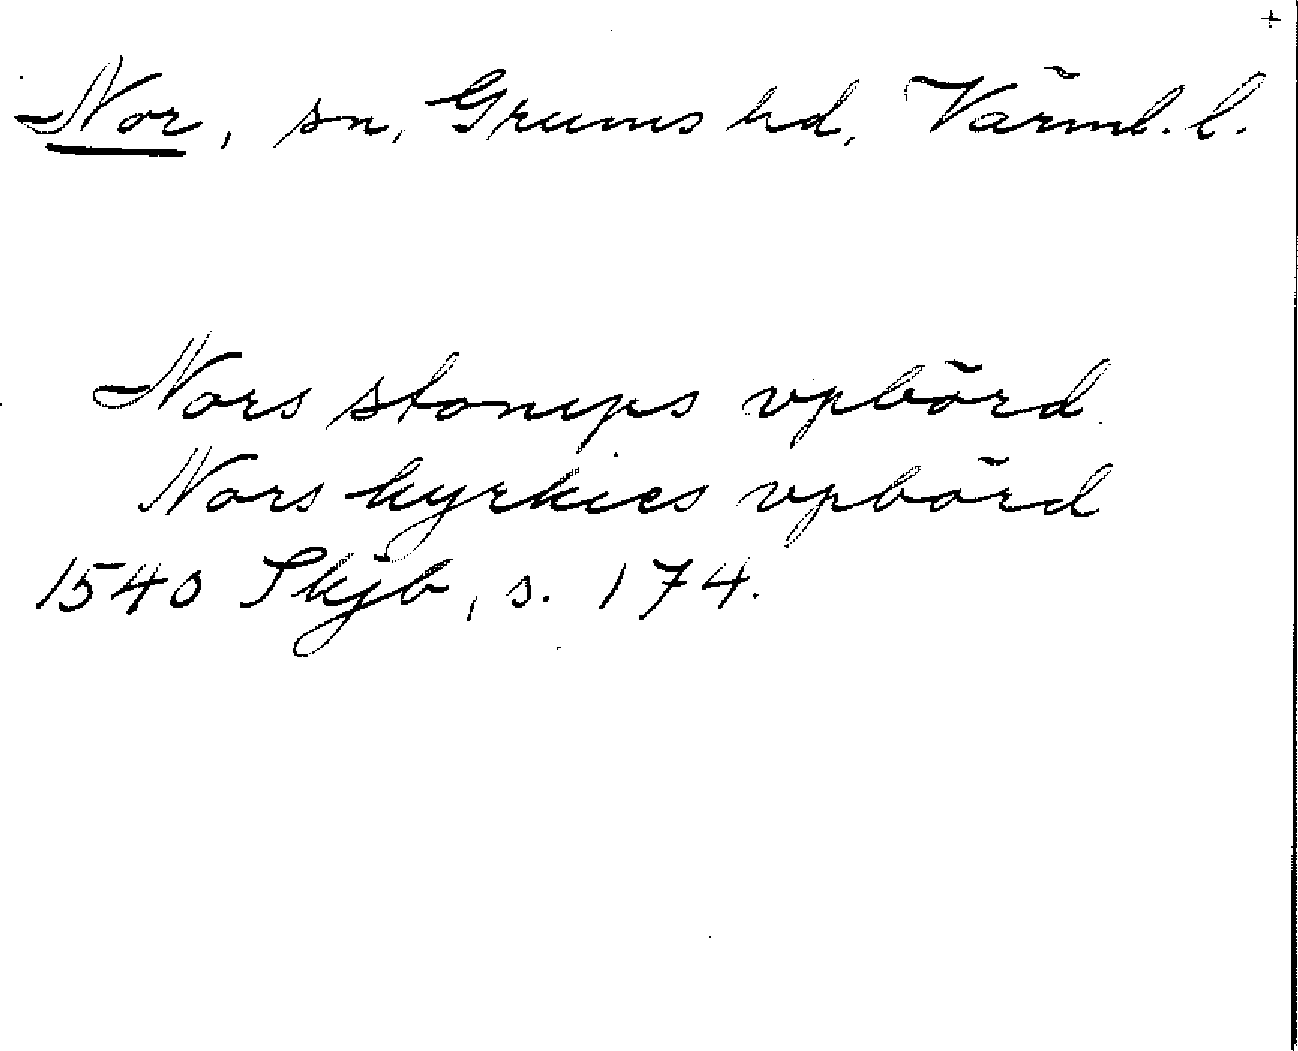 +
Nor, sn, Grums hd, Värml. l.
Nors stomps vpbörd
Nors kyrkies vpbörd
1540 Skjb, s. 174.